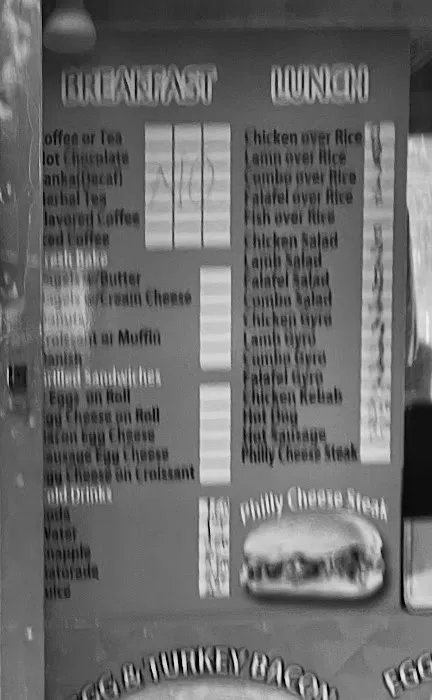 BREAKFAST
offee or Tea
ot Chocolate
anka(Decaf)
erbal Tea
lavored Coffee
ced Coffee
NO
/Butter
w/Cream Cheese
roissant or Muffin
anish
rilled Sandwiches
Eggs on Roll
gg Cheese on Roll
acon Egg Cheese
ausage Egg Cheese
gg Cheese on Croissant
old Drinks
oda
Water
napple
atorade
uice
LUNCH
Chicken over Rice
Lamb over Rice
Combo over Rice
Falafel over Rice
Fish over Rice
Chicken Salad
Lamb Salad
Falafel Salad
Combo Salad
Chicken Gyro
Lamb Gyro
Combo Gyro
Falafel Gyro
Chicken Kebab
Hot Dog
Hot Sausage
Philly Cheese Steak
Philly Cheese Steak
EGG & TURKEY BACON
EGG